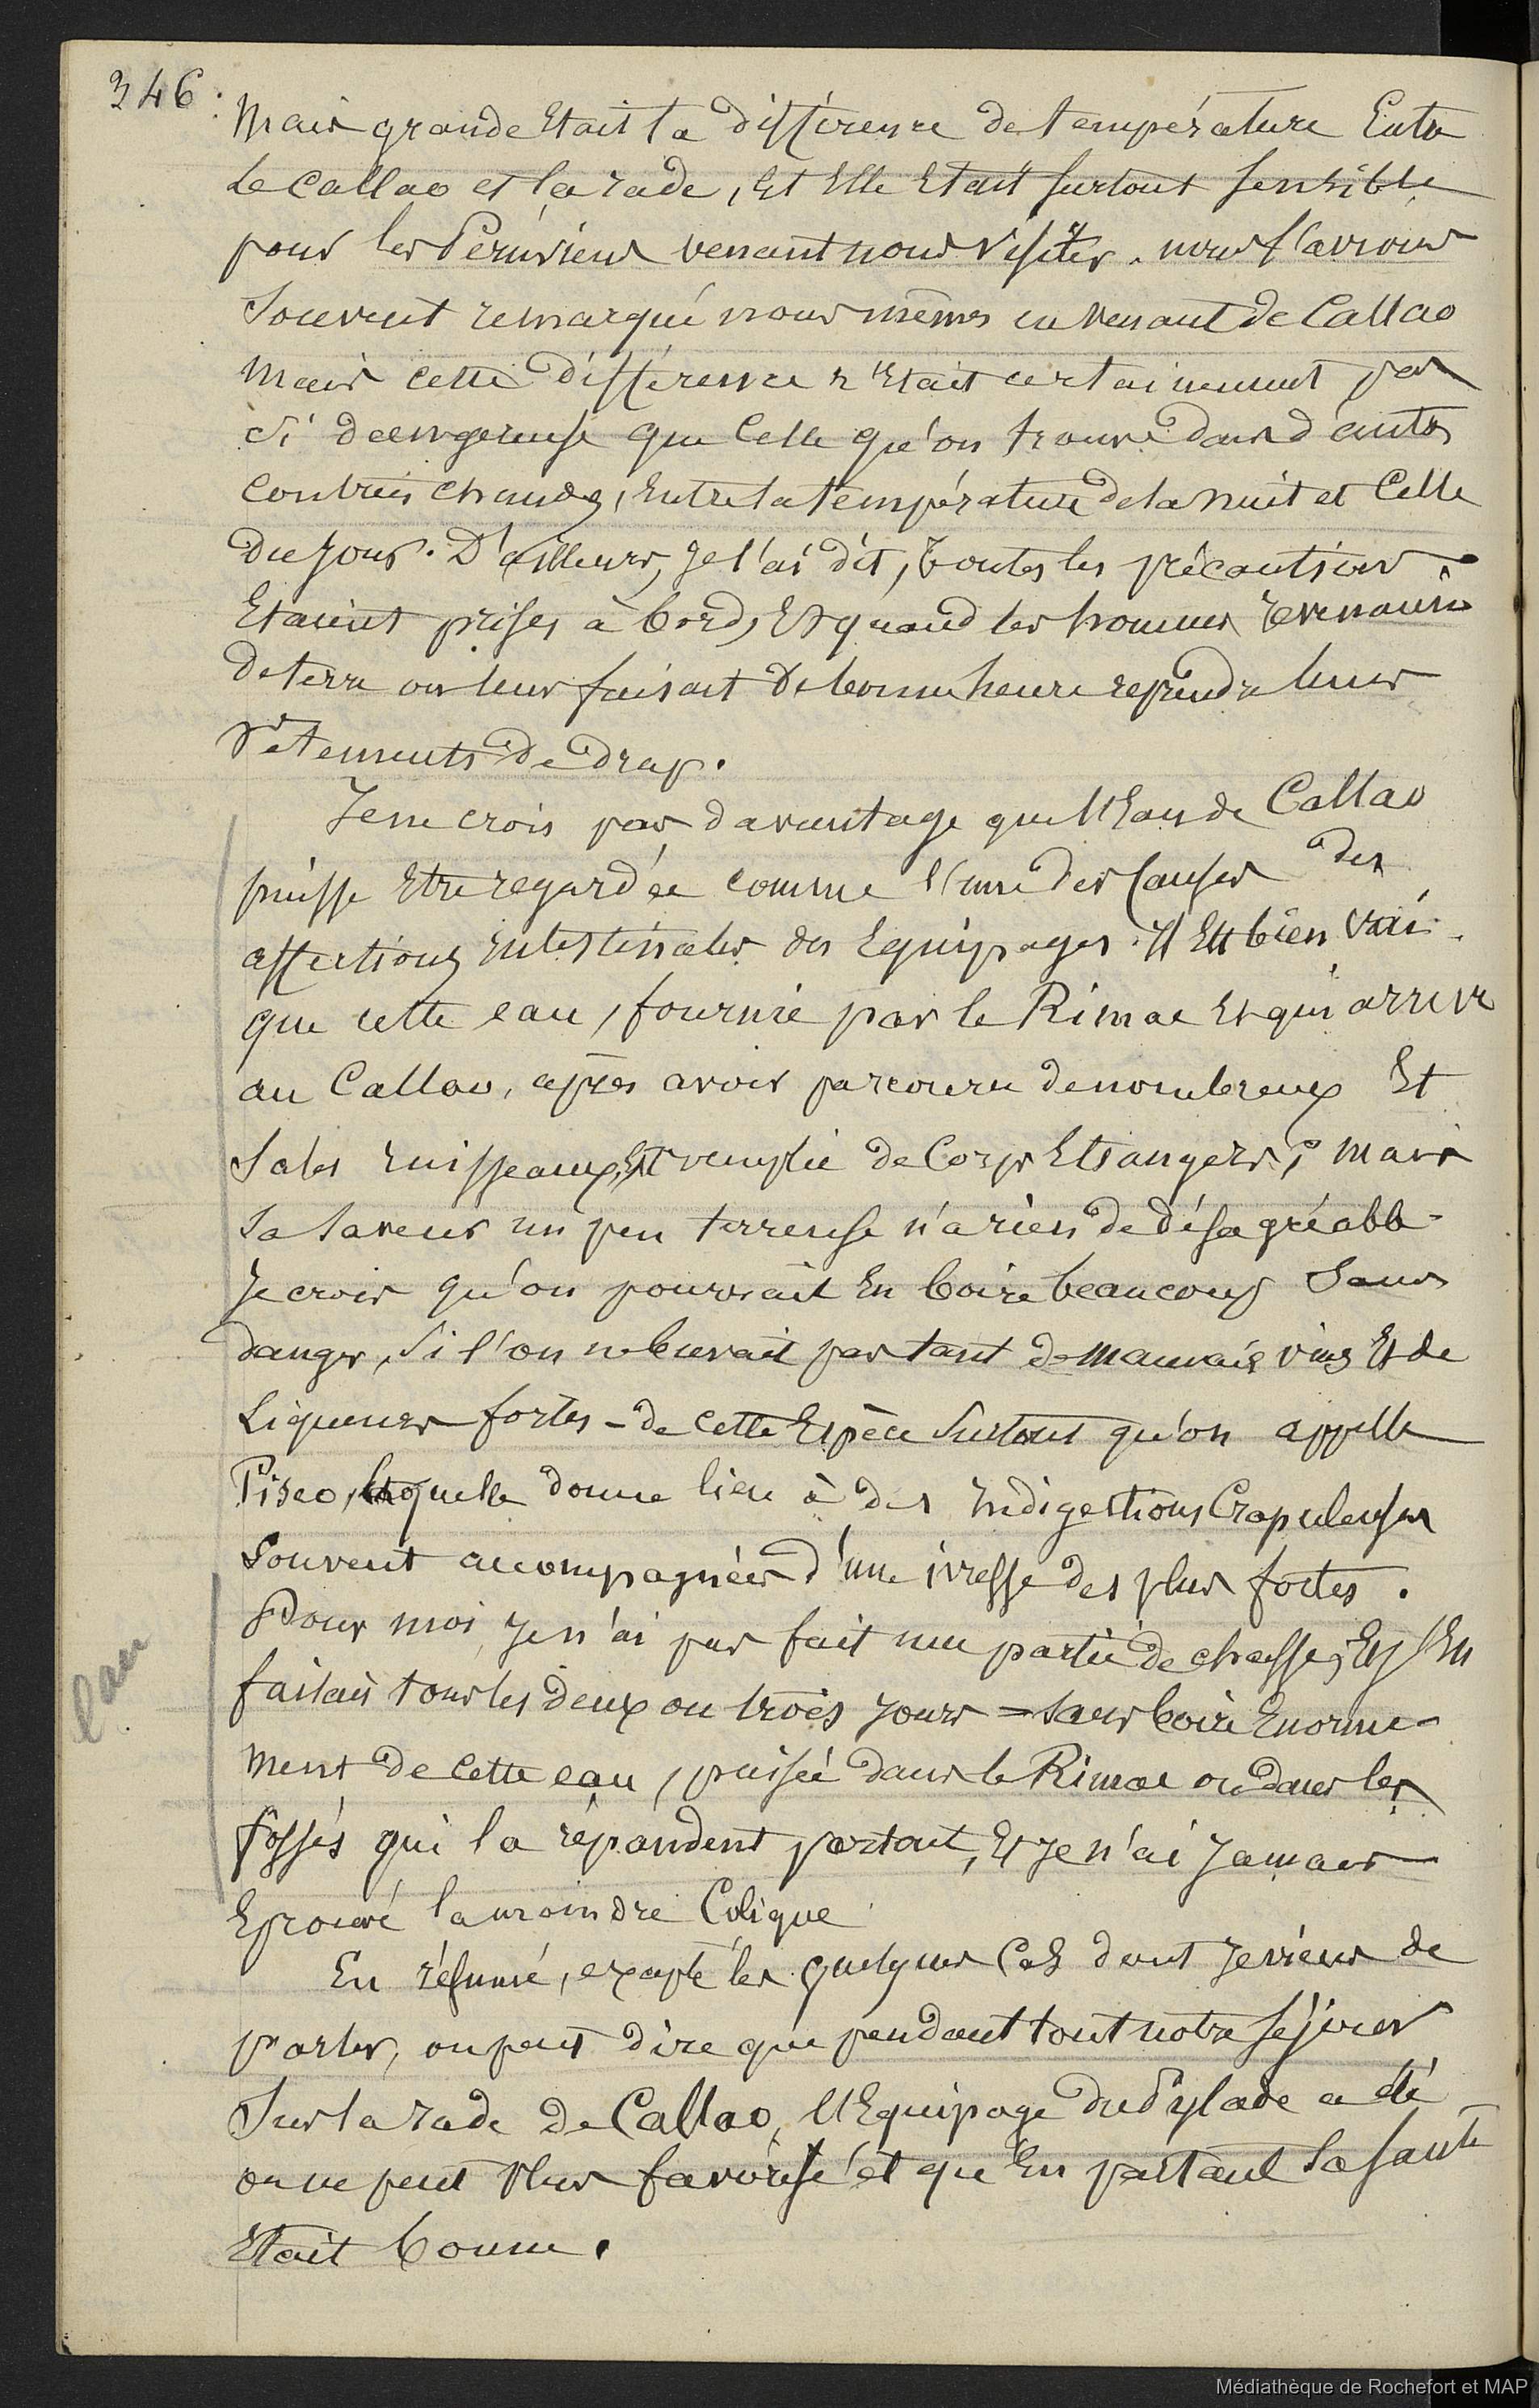 346.
Mais grande Etait la différence de température Entre
le Callao et la rade, Et Elle Etait surtout sensible
pour les Péruviens venant nous visiter. nous l'avions
souvent remarqué nous mêmes en venant de Callao
Mais cette différence n'Etait certainement pas
si dangereuse que Celle qu'on trouve dans d'autres
Contrées chaudes, Entre la température de la nuit et Celle
du jour. D'ailleurs, je l'ai dit, toutes les précautions
Etaient prises à bord, Et quand les hommes revenaient
de terre on leur faisait de bonne heure reprendre leurs
vêtements de drap.
Je ne crois pas davantage que l'Eau de Callao
puisse Etre regardée comme l'une des Causes des
affections intestinales des Equipages. Il Est bien vrai
que cette eau, fournie par le Rimac Et qui arrive
au Callao, après avoir parcouru de nombreux Et
sales ruisseaux, Est remplie de Corps Etrangers; mais
sa saveur un peu terreuse n'a rien de désagréable
Je crois qu'on pourrait En boire beaucoup sans
danger, si l'on ne buvait pas tant de mauvais vins Et de
Liqueurs fortes - de cette Espèce surtout qu'on appelle
Pisco, laquelle donne lieu à des indigestions Crapuleuses
souvent accompagnées d'une ivresse des plus fortes.
Pour moi je n'ai pas fait une partie de chasse, Et j'En
faisais tous les deux ou trois jours = sans boire Enormé-
ment de cette eau, puisée dans le Rimac ou dans les
fossés qui la répandent partout, Et je n'ai jamais
Eprouvé la moindre Colique
En résumé, excepté les quelques Cas dont je viens de
parler, on peut dire que pendant tout notre séjour
sur la rade de Callao, l'Equipage du Pylade a été
on ne peut plus favorisé et qu'En partant sa santé
Etait bonne.
l'eau
Médiathèque de Rochefort et MAP